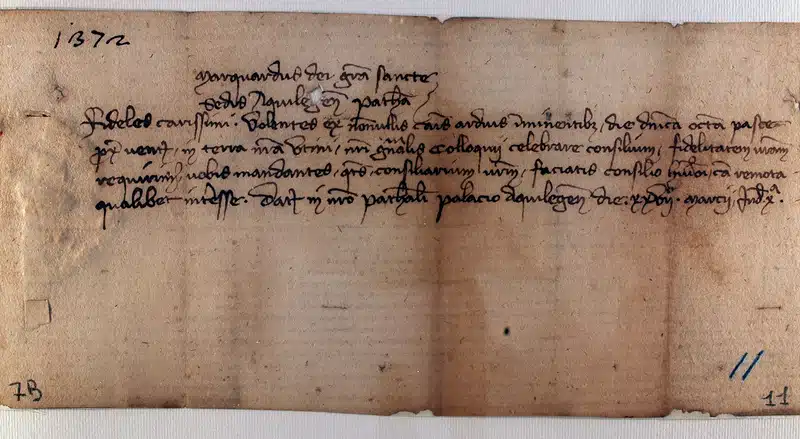 1372
Marquardus dei gra sancte
Sedis Aquilegen Patha
Fideles carissimi. Volentes ex nonnullis causis arduis iminentibus, die dnica octa pasce
px ventur, in terra nra Utini, nri gnalis Colloquii celebrare consilium, fidelitatem vram
requirim, vobis mandantes, qts consiliarium vrm, faciatis consilio hmoi, ca remota
qualibet interesse. Dat in nro Pathali palacio Aquilegen die. xxvii. Marcii. Ind. x.
7B
11
11